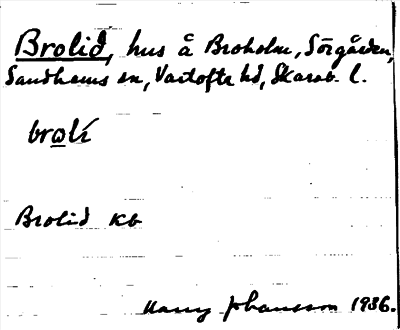 Brolid, hus å Broholm, Sörgården,
Sandhems sn, Vartofta hd, Skarab. l.
brolí
Brolid Kb
Harry Johansson 1936.